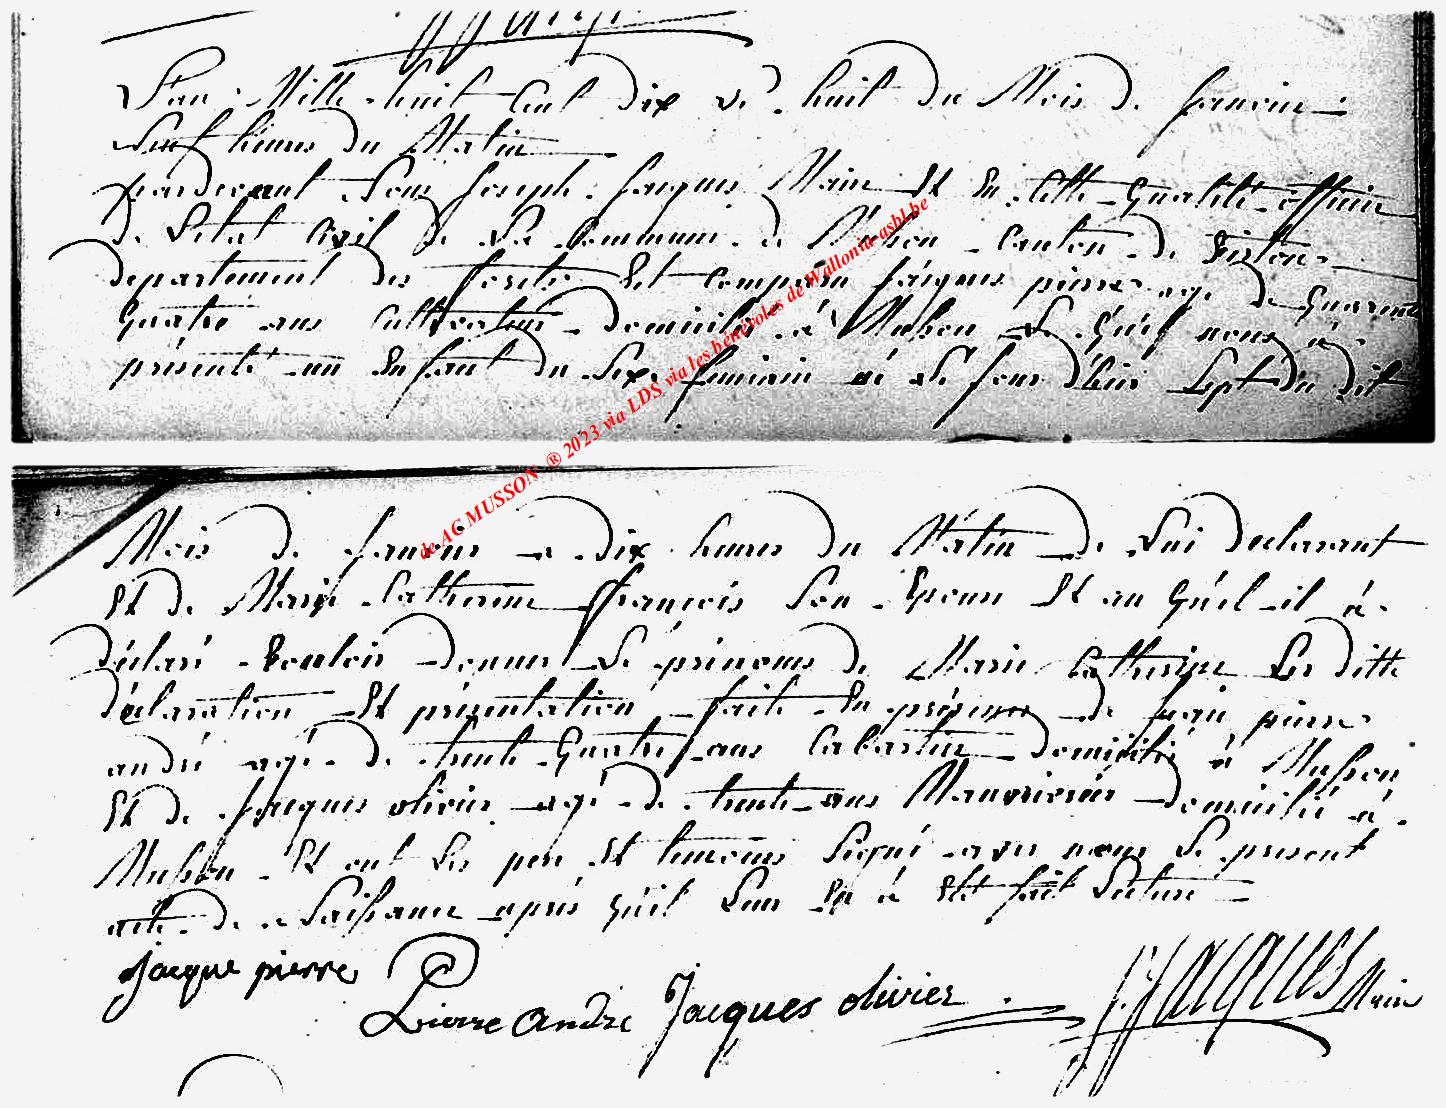 L'an Mille huit Cent dix le huit du Mois de Janvier
Neuf heures du Matin
pardevant Nous Joseph Jacques Maire Et En Cette Qualité officier
de L'etat Civil de La Commune de Musson Canton de Virton
departement des forets Est comparu Jacques pierre agé de Quarente
Quatre ans Cultivateur domicilié á Musson Le Quel nous á
présenté un Enfant du Sexe feminin né Le Jour d'hier Sept du dit
Mois de Janvier a dix heures du Matin de Lui declarant
Et de Marie Catherine François Son Epouse Et au Quel il á
déclaré Vouloir donner Le prénoms de Marie Catherine Les ditte
déclaration Et présentation faite En présence de Jean pierre
andré agé de trente Quatre ans Cabartier domicilié á Musson
Et de Jacques olivier agé de trente ans Manvrier domicilié á
Musson Et ont Les pere Et temoins Signé avec nous Le present
acte de Naissance aprés Qu'il Leur En á Eté fait Lecture
Jacque pierre
Pierre andre Jacques olivier J. Jacques Maire
de AG MUSSON ® 2023 via LDS via les bénévoles de Wallonia-asbl.be